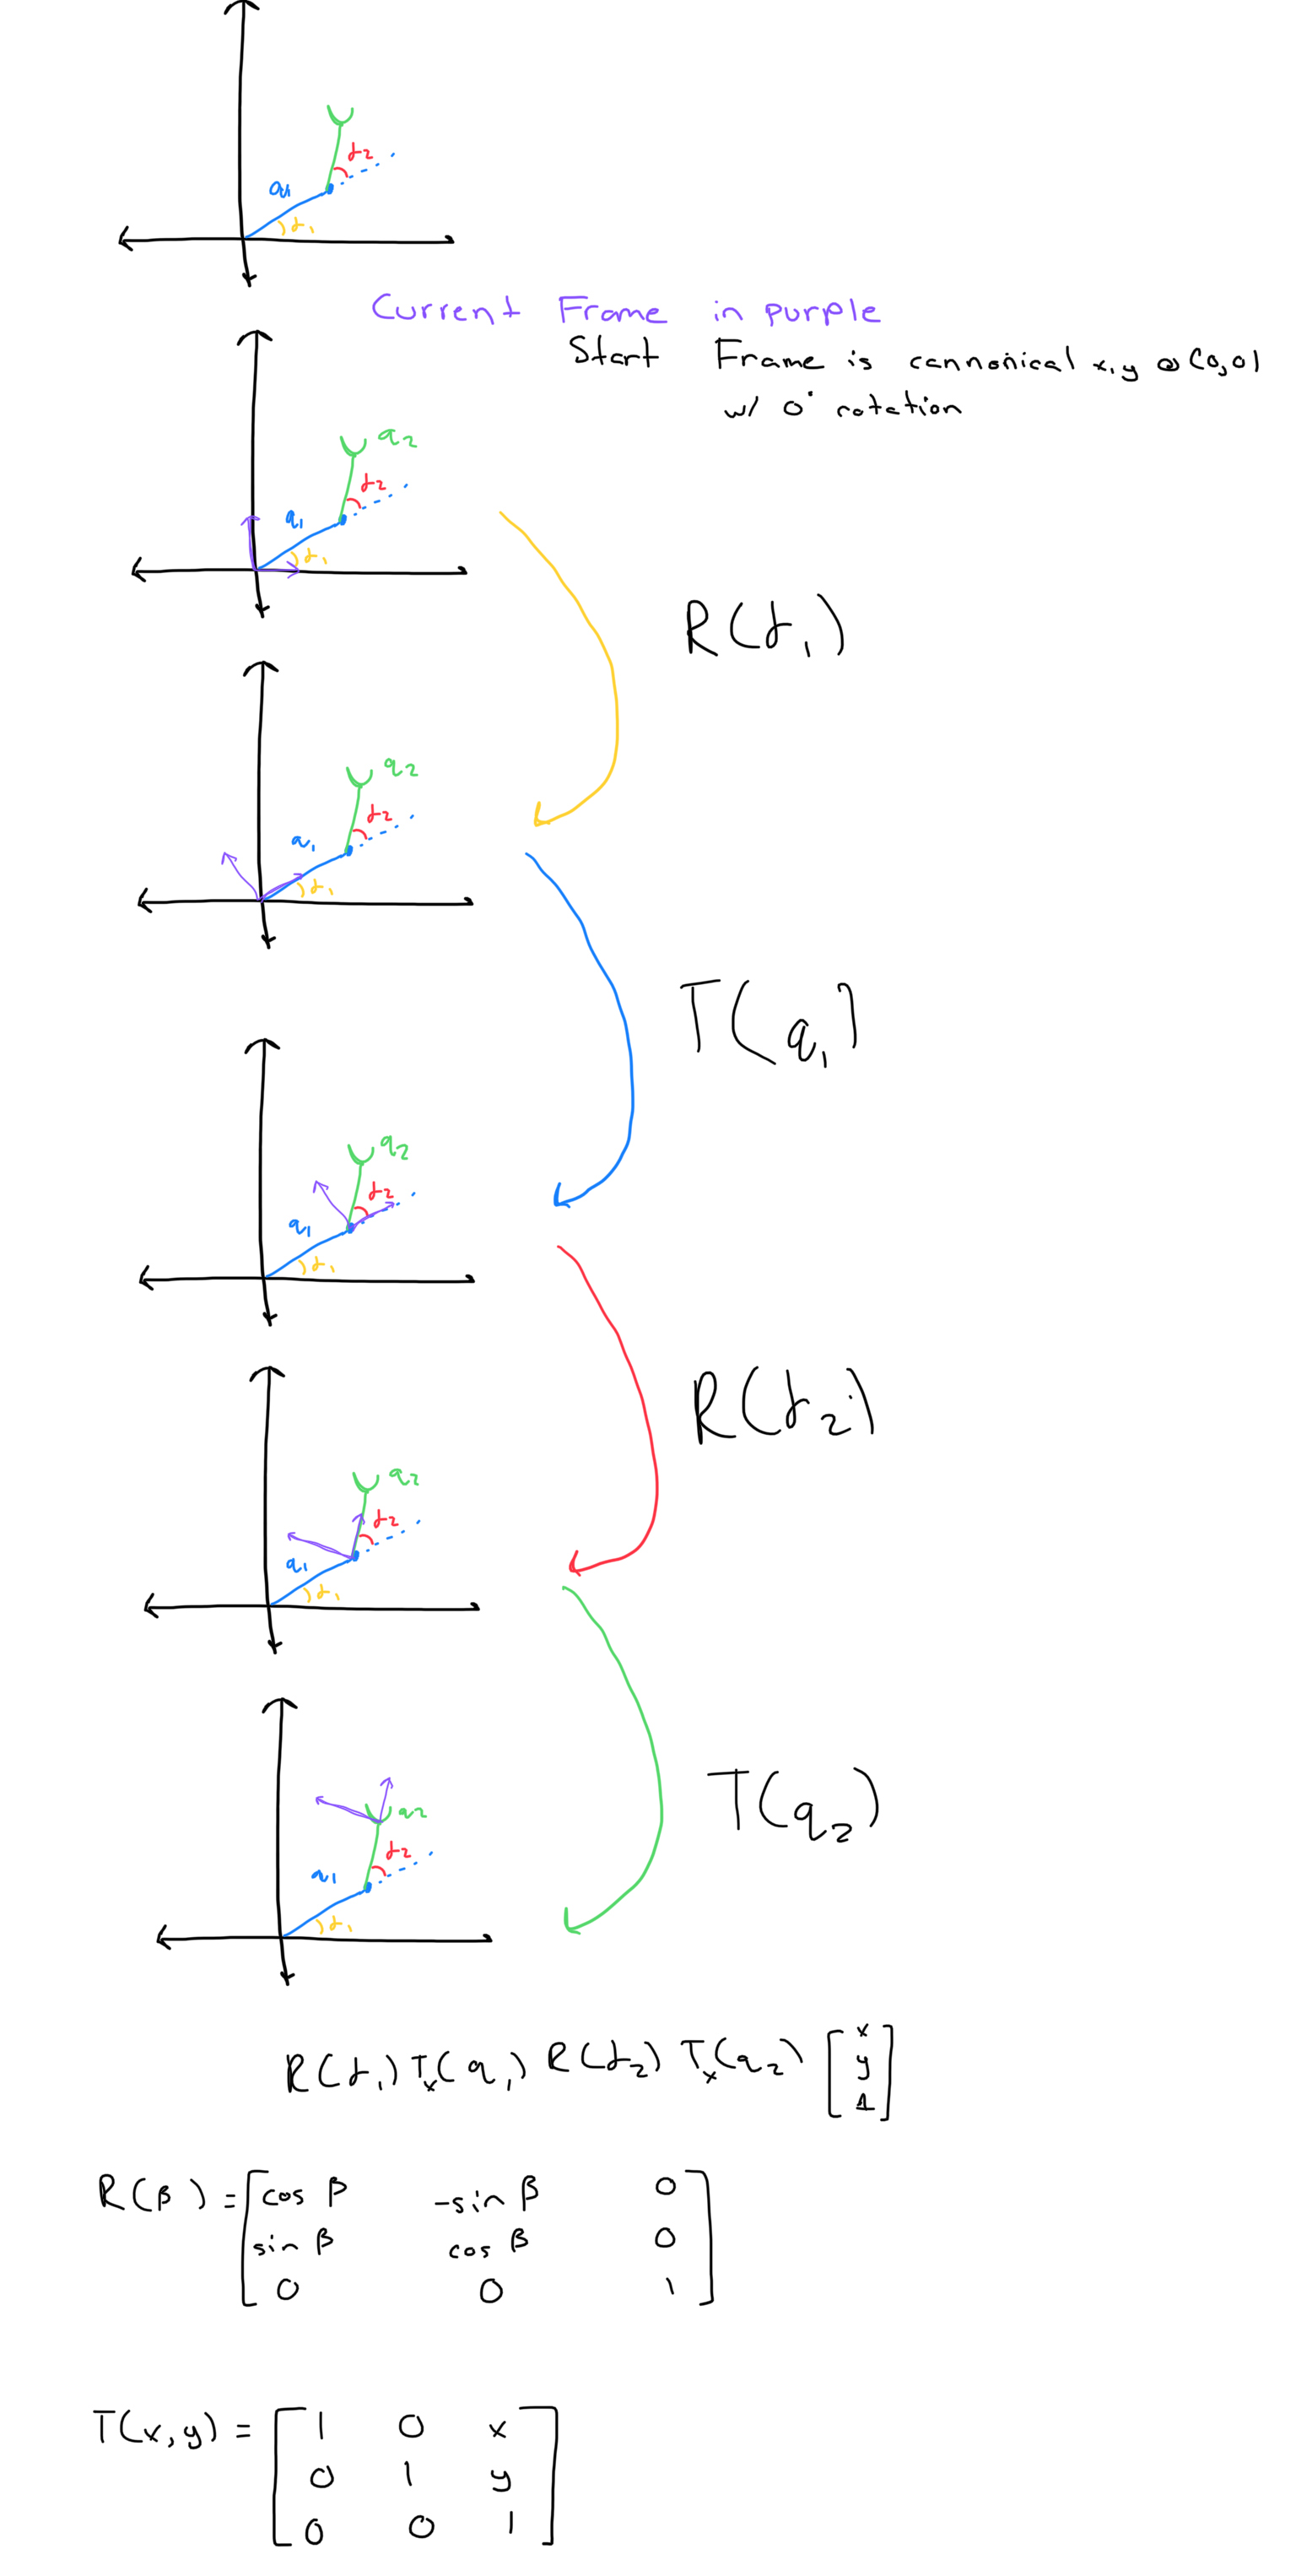 α2
a1
α1
Current Frame in purple
Start Frame is cannonical x,y @(0,0)
w/ 0° rotation
q2
α2
q1
α1
R(α1)
q2
α2
a1
α1
T(q1)
q2
α2
q1
α1
R(α2)
q2
α2
q1
α1
T(q2)
q2
α2
a1
α1
R(α1) Tx(q1) R(α2) Tx(q2) [x
y
1]
R(β) = [cos β -sin β 0
sin β cos β 0
0 0 1]
T(x,y) = [1 0 x
0 1 y
0 0 1]